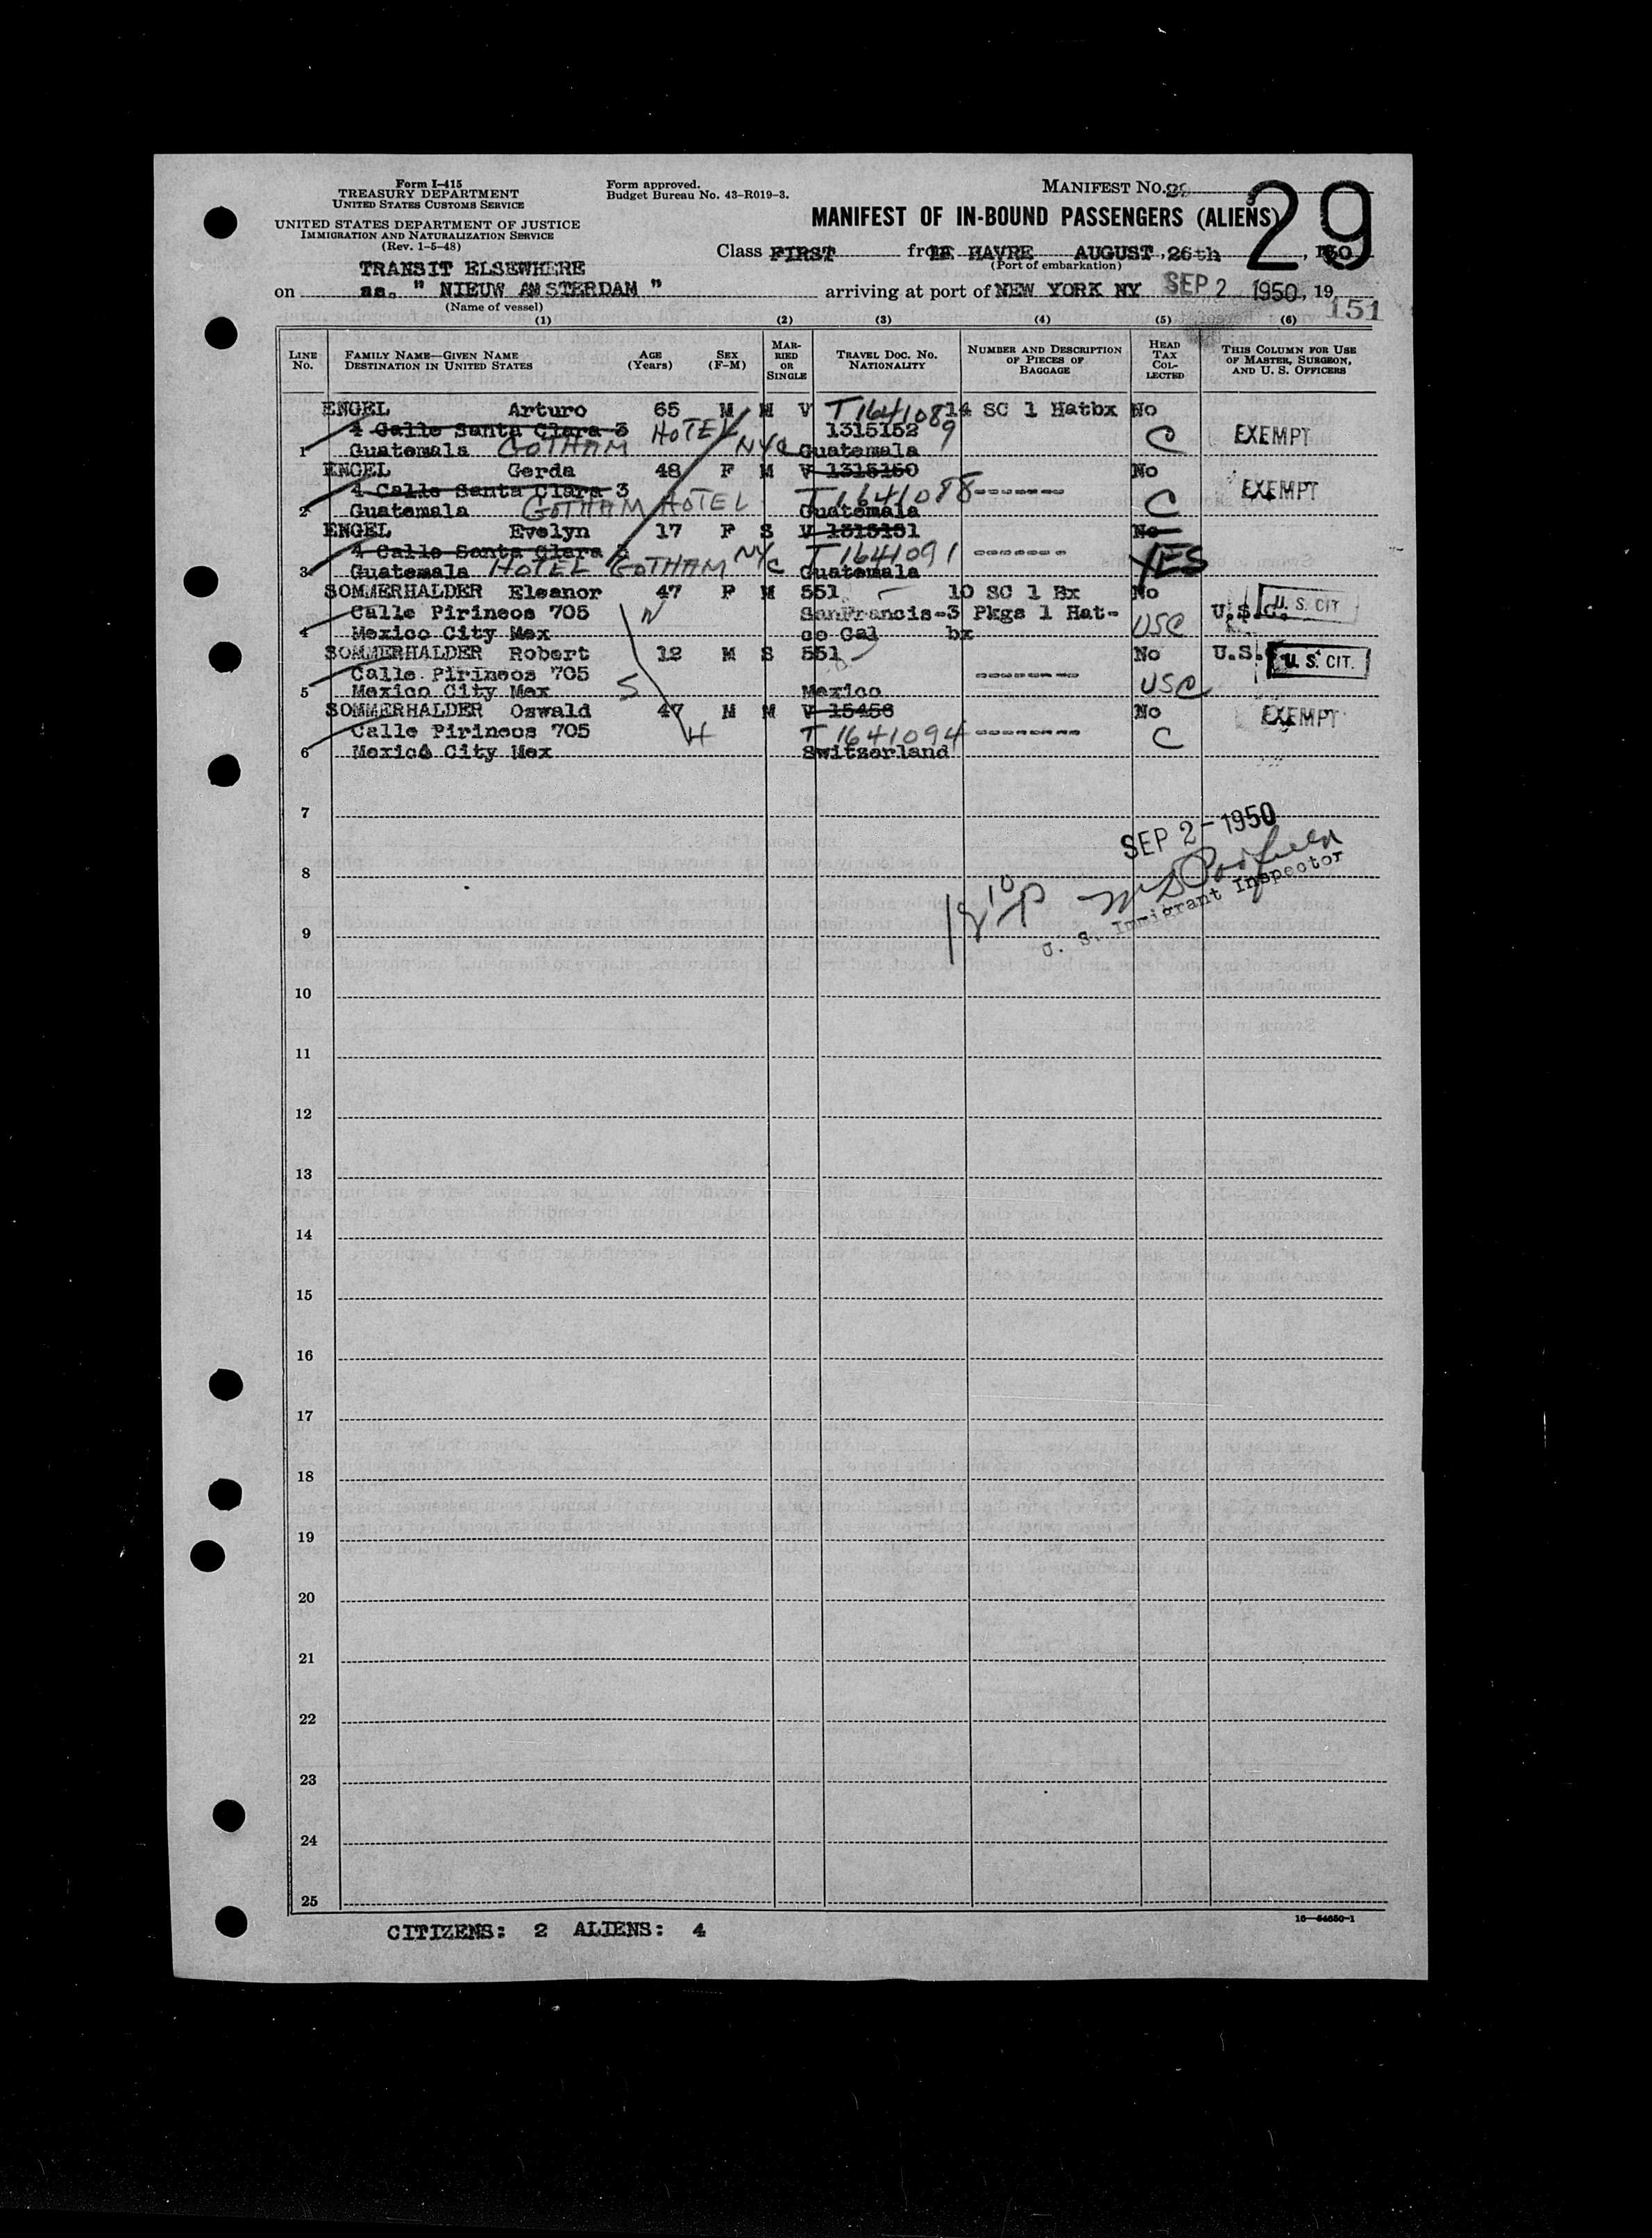 Form I-415
TREASURY DEPARTMENT
UNITED STATES CUSTOMS SERVICE
UNITED STATES DEPARTMENT OF JUSTICE
IMMIGRATION AND NATURALIZATION SERVICE
(Rev. 1-5-48)
Form approved.
Budget Bureau No. 43-R019-3.
MANIFEST NO.
29
MANIFEST OF IN-BOUND PASSENGERS (ALIENS)
Class FIRST from LE HAVRE AUGUST, 26th, 1950
(Port of embarkation)
TRANSIT ELSEWHERE
on ss. " NIEUW AMSTERDAM " arriving at port of NEW YORK NY SEP 2 1950, 19
(Name of vessel)
151
(1) (2) (3) (4) (5) (6)
LINE No. FAMILY NAME—GIVEN NAME DESTINATION IN UNITED STATES AGE (Years) SEX (F-M) MARRIED OR SINGLE TRAVEL DOC. NO. NATIONALITY NUMBER AND DESCRIPTION OF PIECES OF BAGGAGE HEAD TAX COLLECTED THIS COLUMN FOR USE OF MASTER, SURGEON, AND U. S. OFFICERS
ENGEL Arturo 65 M M V T1641089 14 SC 1 Hatbx No
4 Calle Santa Clara 3 HOTEL 1315152 9 C EXEMPT
1 Guatemala GOTHAM NYC Guatemala
ENGEL Gerda 48 F M V 1315150 No
4 Calle Santa Clara 3 T1641088 -------- C EXEMPT
2 Guatemala GOTHAM HOTEL Guatemala
ENGEL Evelyn 17 F S V 1315151 No
4 Calle Santa Clara 3 NYC T1641091 -------- YES
3 Guatemala HOTEL GOTHAM Guatemala
SOMMERHALDER Eleanor 47 F M 551 10 SC 1 Bx No
Calle Pirineos 705 N SanFrancis- 3 Pkgs 1 Hat- U.S.C. U. S. CIT
4 Mexico City Mex co Cal bx USC
SOMMERHALDER Robert 12 M S 551 No U.S. U. S. CIT.
Calle Pirineos 705 --------
5 Mexico City Mex S Mexico USC
SOMMERHALDER Oswald 47 M M V 15456 No EXEMPT
Calle Pirineos 705 H T 1641094 -------- C
6 Mexico City Mex Switzerland
7
SEP 2-1950
8
U. S. Immigrant Inspector
9
10
11
12
13
14
15
16
17
18
19
20
21
22
23
24
25
16-54650-1
CITIZENS: 2 ALIENS: 4